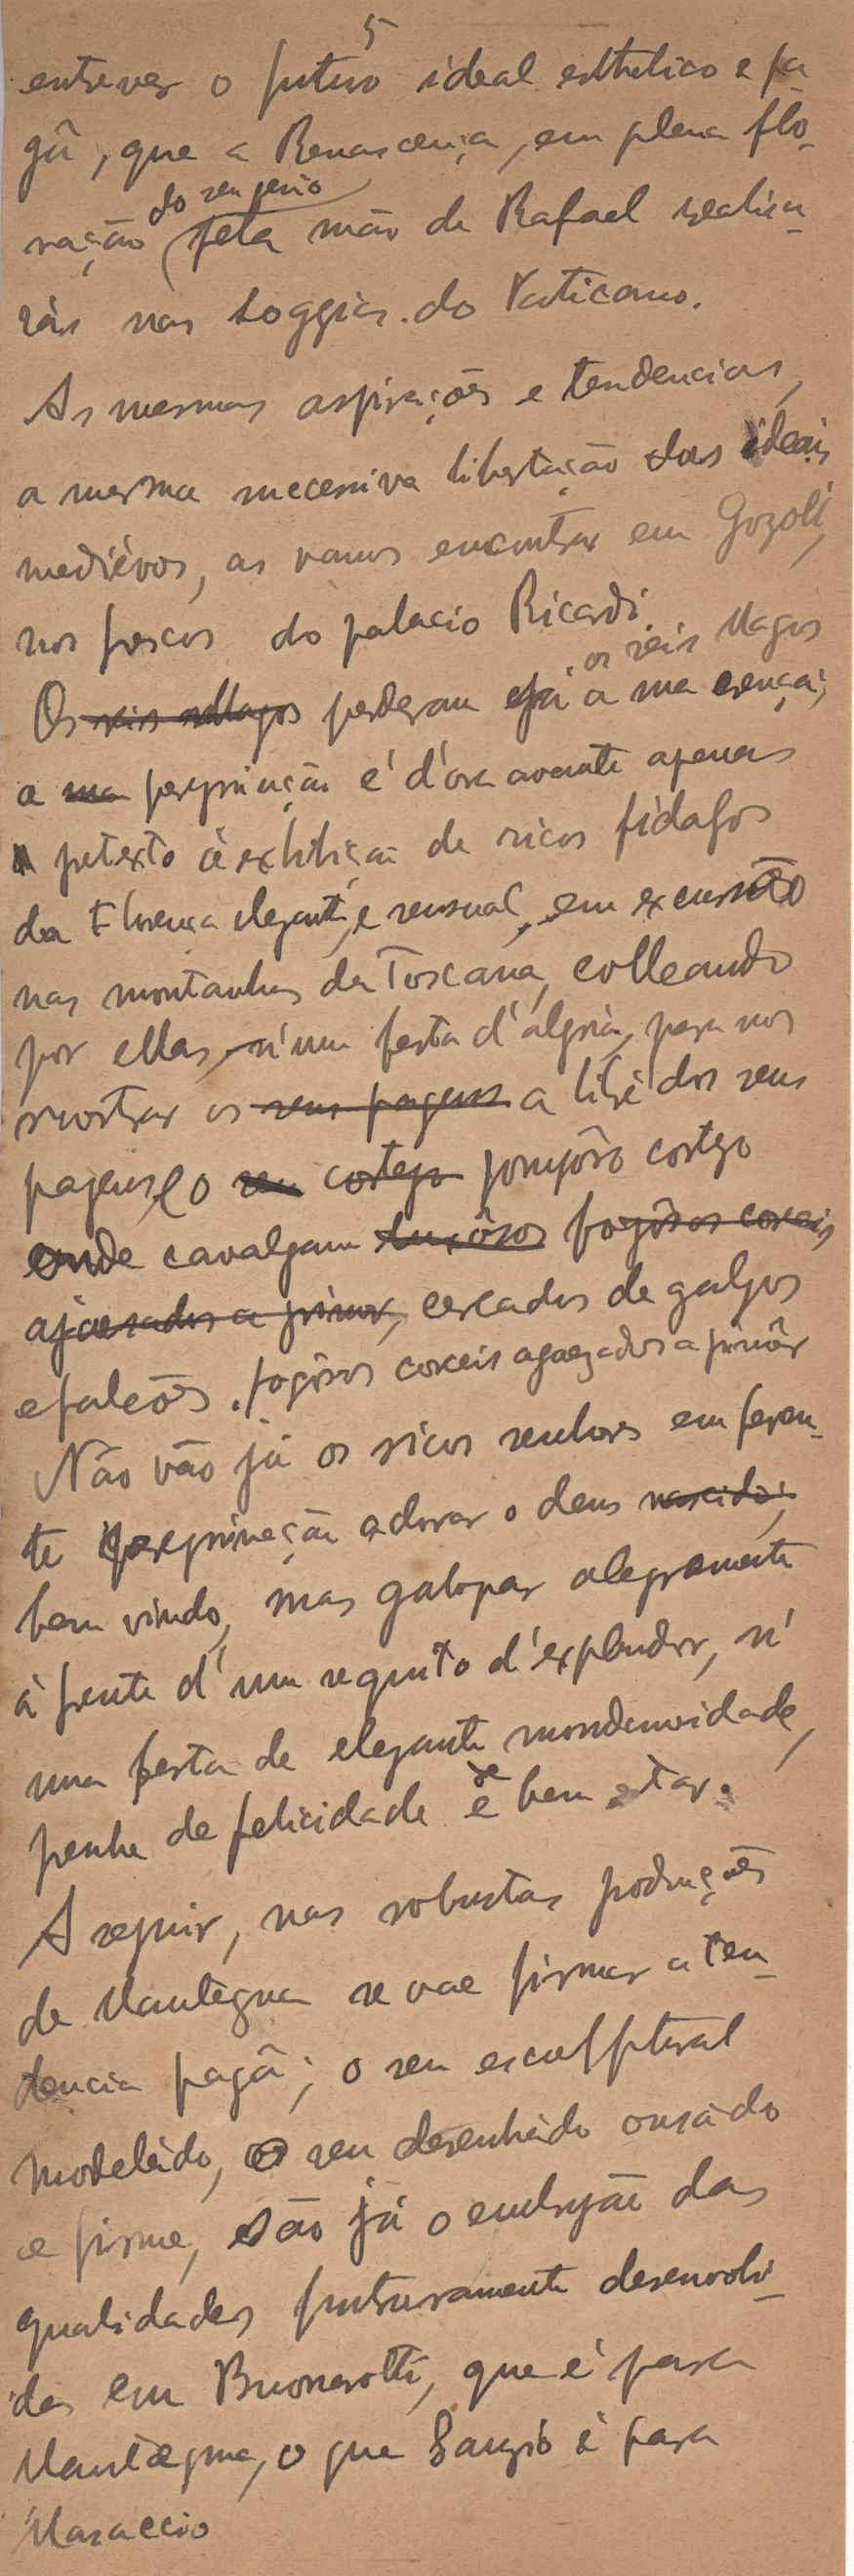 5
entrever o futuro ideal esthetico e pa-
gã, que a Renascença, em plena flo-
do seu genio
ração pela mão de Rafael realisa-
rás nas Loggias do Vaticano.
As mesmas aspirações e tendencias,
a mesma successiva libertação dos ideais
mediévos, as vamos encontrar em Gozoli,
nos frescos do palacio Ricardi.
os reis Magos
Os reis Magos perderam já a sua crença;
a sua peregrinação é d'ora avante apenas
pretexto á exhibição de ricos fidalgos
da Florença elegante, e sensual, em excursão
nas montanhas da Toscana, colleando
por ellas, n'uma festa d'alegria, para nos
mostrar os seus pagens a libré dos seus
pagens, e o seu cortejo pomposo cortejo
onde cavalgam luxôsos fogôsos corceis
ajaezados a primor, cercados de galgos
e falcões. fogôsos corceis ajaezados a primôr
Não vão já os ricos senhores em feren-
te peregrinação adorar o deus nascido,
bem vindo, mas galopar alegremente
á frente d'um sequito d'explendor, n'
uma festa de elegante mundanidade,
de
penhe de felicidade e bem estar.
A seguir, nas robustas producções
de Mantegna se vae firmar a ten-
dencia pagã; o seu esculptural
modeládo, o seu desenhádo ousádo
e firme, são já o embryão das
qualidades futuramente desenvolvi-
das em Buonarotti, que é para
Mantegna, o que Sanzio é para
Masaccio